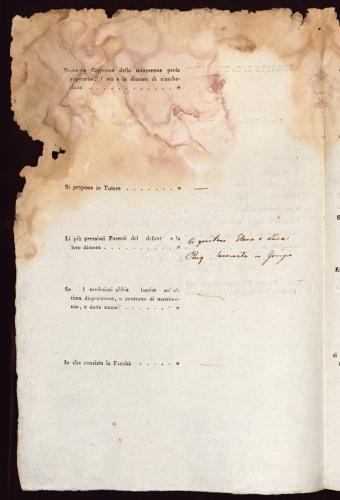 Nome e Cognome della minorenne prole
superstite, l' età e la dimora di ciasche-
duno . . . . . . . . . . . . . „
Si propone in Tutore . . . . . . . „ —
Li più prossimi Parenti del defunt e la
loro dimora . . . . . . . . . . „
la genitora Elena e Luca
in
Se i medesimi abbia lasciat un' ul-
tima disposizione, o contratto di matrimo-
nio, e dove esista? . . . . . . . „
In che consista la Facoltà . . . . . . „